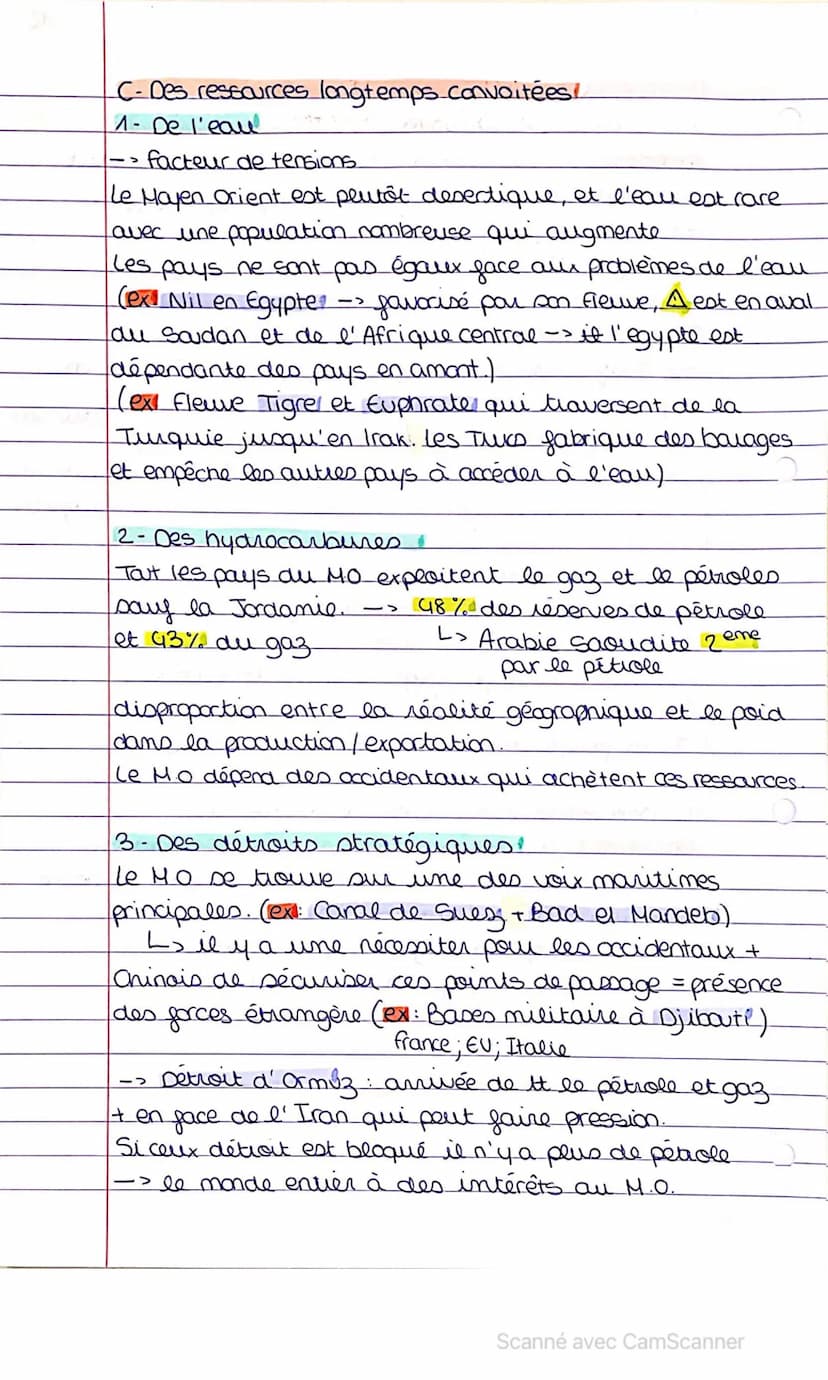 C- Des ressources longtemps convoitées
1- De l'eau
-> facteur de tensions
Le Moyen Orient est plutôt desertique, et l'eau est rare
avec une population nombreuse qui augmente
Les pays ne sont pas égaux face aux problèmes de l'eau
(ex: Nil en Egypte: -> favorisé par son fleuve, ⚠ est en aval
du Soudan et de l'Afrique central -> l'egypte est
dépendante des pays en amont.)
(ex: Fleuve Tigre et Euphrate qui traversent de la
Turquie jusqu'en Irak. Les Turcs fabrique des barages
et empêche les autres pays à accéder à l'eau)
2- Des hydrocarbures
Tout les pays du MO exploitent le gaz et le pétroles
sauf la Jordanie. -> 48% des réserves de pétrole
et 43% du gaz
↳ Arabie Saoudite 2eme
par le pétrole
disproportion entre la réalité géographique et le poid
dans la production/exportation.
Le MO dépend des occidentaux qui achètent ces ressources.
3- Des détroits stratégiques
Le MO se trouve sur une des voix maritimes
principales. (ex: Canal de Suez + Bad el Mandeb)
↳ il y a une nécessiter pour les occidentaux +
Chinois de sécuriser ces points de passage = présence
des forces étrangère (ex: Bases militaire à Djibouti)
france; EU; Italie
-> Détroit d'Ormuz : arrivée de tt le pétrole et gaz
+ en face de l'Iran qui peut faire pression.
Si ceux détroit est bloqué il n'y a plus de pétrole
-> le monde entier à des intérêts au M.O.
Scanné avec CamScanner